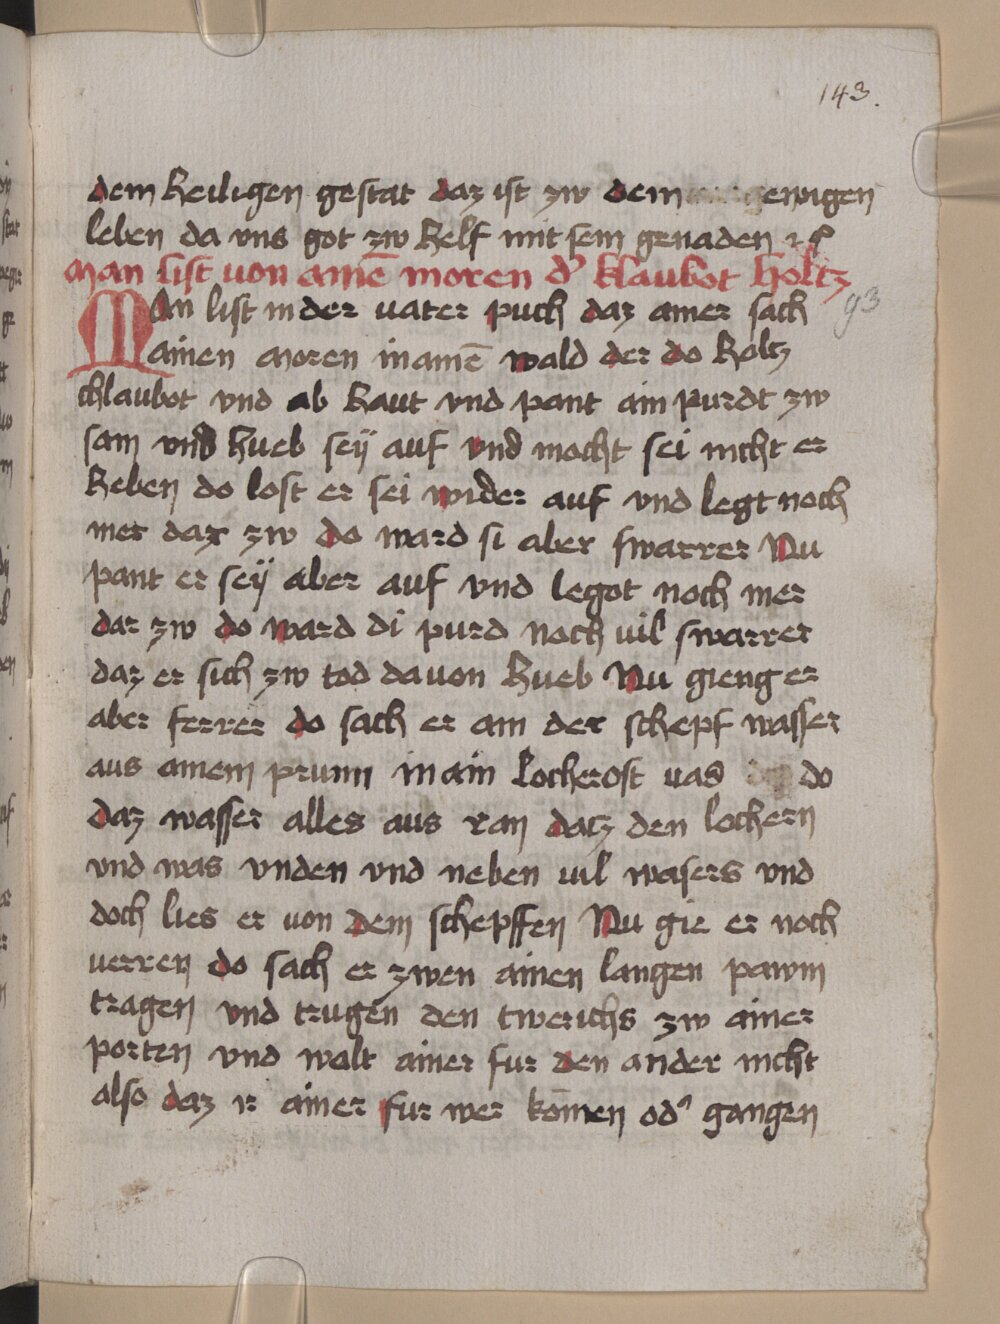 143.
dem heiligen gestat daz ist zw dem ewigen
leben da vns got zw helf mit sein genaden
Man list von ainē moren d' klaubot holtz
93
Man list in der vater puch daz ainer sach
ainen moren in ainē wald der do holtz
chlaubot vnd ab haut vnd pant ain purdt zw
sam vnd hueb seÿ auf vnd mocht sei nicht er
heben do lost er sei wider auf vnd legt noch
mer dar zw do ward si aber swarrer Nu
pant er seÿ aber auf vnd legot noch mer
dar zw do ward di purd noch uil swarrer
daz er sich zw tod da uon hueb Nu gieng er
aber ferrer do sach er ain der schepf wasser
aus ainem prunn in ain locherost uas do
daz wasser alles aus ran datz den lochern
vnd was vnden vnd neben uil wasers vnd
doch lies er uon dem schepffen Nu gie er noch
uerren do sach er zwen ainen langen pawm
tragen vnd trugen den twerichs zw ainer
porten vnd wolt ainer fur den ander nicht
also daz ir ainer fur wer kōmen od' gangen